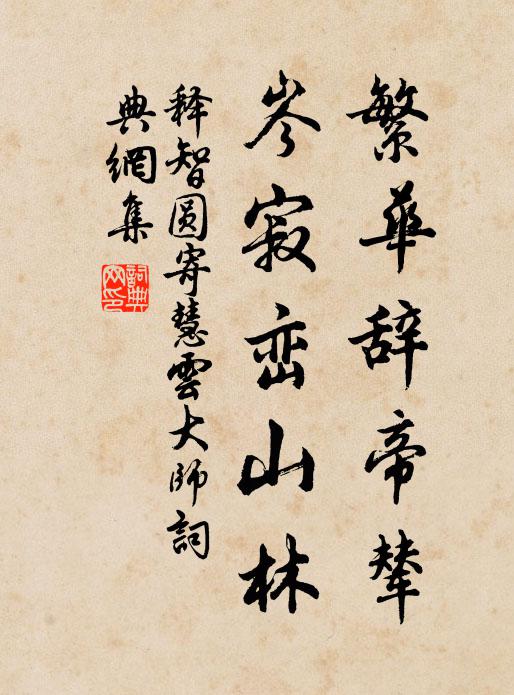 繁華辞帝輦
岑寂峦山林
释智圆寄慧雲大師詞
典網集
詞典
网印